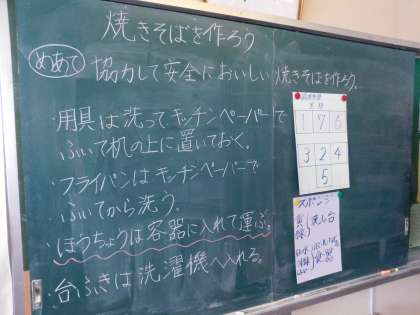 焼きそばを作ろう
めあて 協力して安全においしい焼きそばを作ろう。
・用具は洗ってキッチンペーパーで
ふいて机の上に置いておく。
・フライパンはキッチンペーパーで
ふいてから洗う。
・ほうちょうは容器に入れて運ぶ。
・台ふきは洗濯機へ入れる。
1 7 6
3 2 4
5
スポンジ
流し台
食器